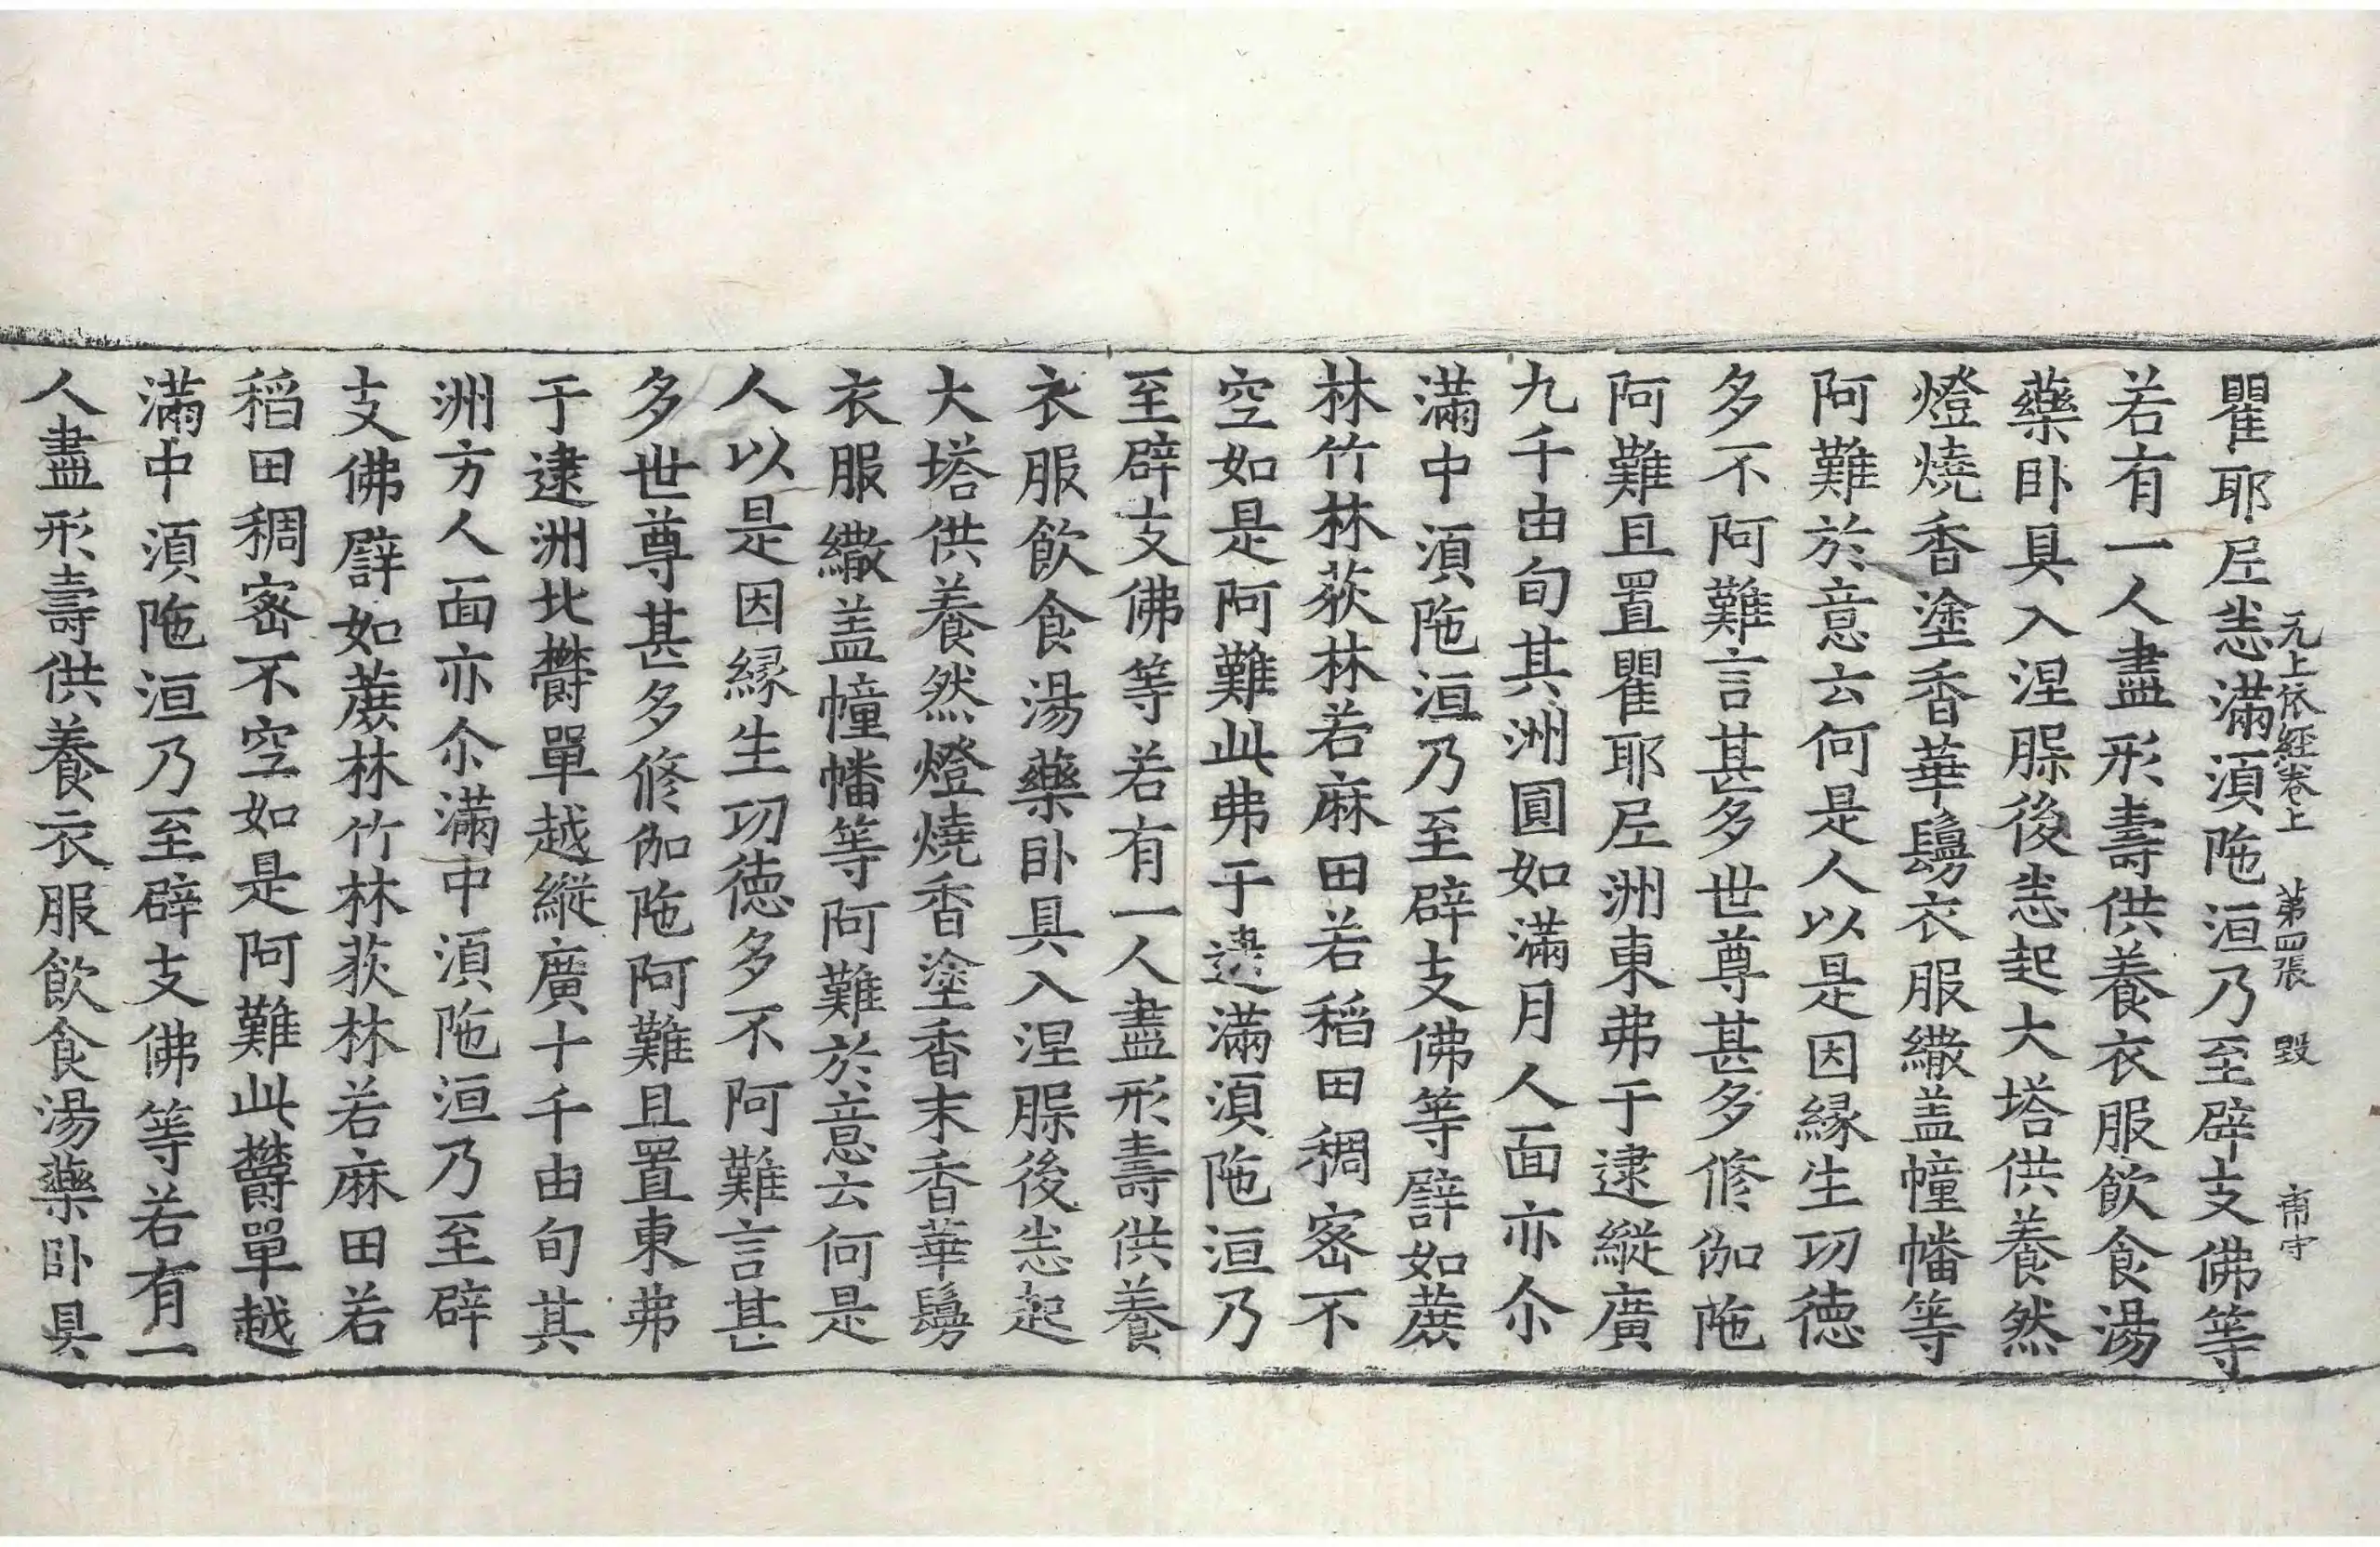 瞿耶𡰱悉滿湏陁洹乃至辟支佛等
无上依經卷上　第四張　毀　甫守
若有一人盡形壽供養衣服飲食湯
藥卧具入涅槃後悉起大塔供養然
燈燒香塗香華鬘衣服繖盖幢幡等
阿難於意云何是人以是因緣生切德
多不阿難言甚多世尊甚多修伽陁
阿難且置瞿耶𡰱洲東弗于逮縱廣
九千由旬其洲圓如滿月人面亦尒
滿中湏陁洹乃至辟支佛等譬如蔗
林竹林荻林若麻田若稻田稠宻不
空如是阿難此弗于逮滿湏陁洹乃
至辟支佛等若有一人盡形壽供養
衣服飲食湯藥卧具入涅槃後悉起
大塔供養然燈燒香塗香末香華鬘
衣服繖盖幢幡等阿難於意云何是
人以是因緣生切德多不阿難言甚
多世尊甚多修伽陁阿難且置東弗
于逮洲北欝單越縱廣十千由旬其
洲方人面亦尒滿中湏陁洹乃至辟
支佛譬如蔗林竹林荻林若麻田若
稻田稠宻不空如是阿難此欝單越
滿中湏陁洹乃至辟支佛等若有一
人盡形壽供養衣服飲食湯藥卧具